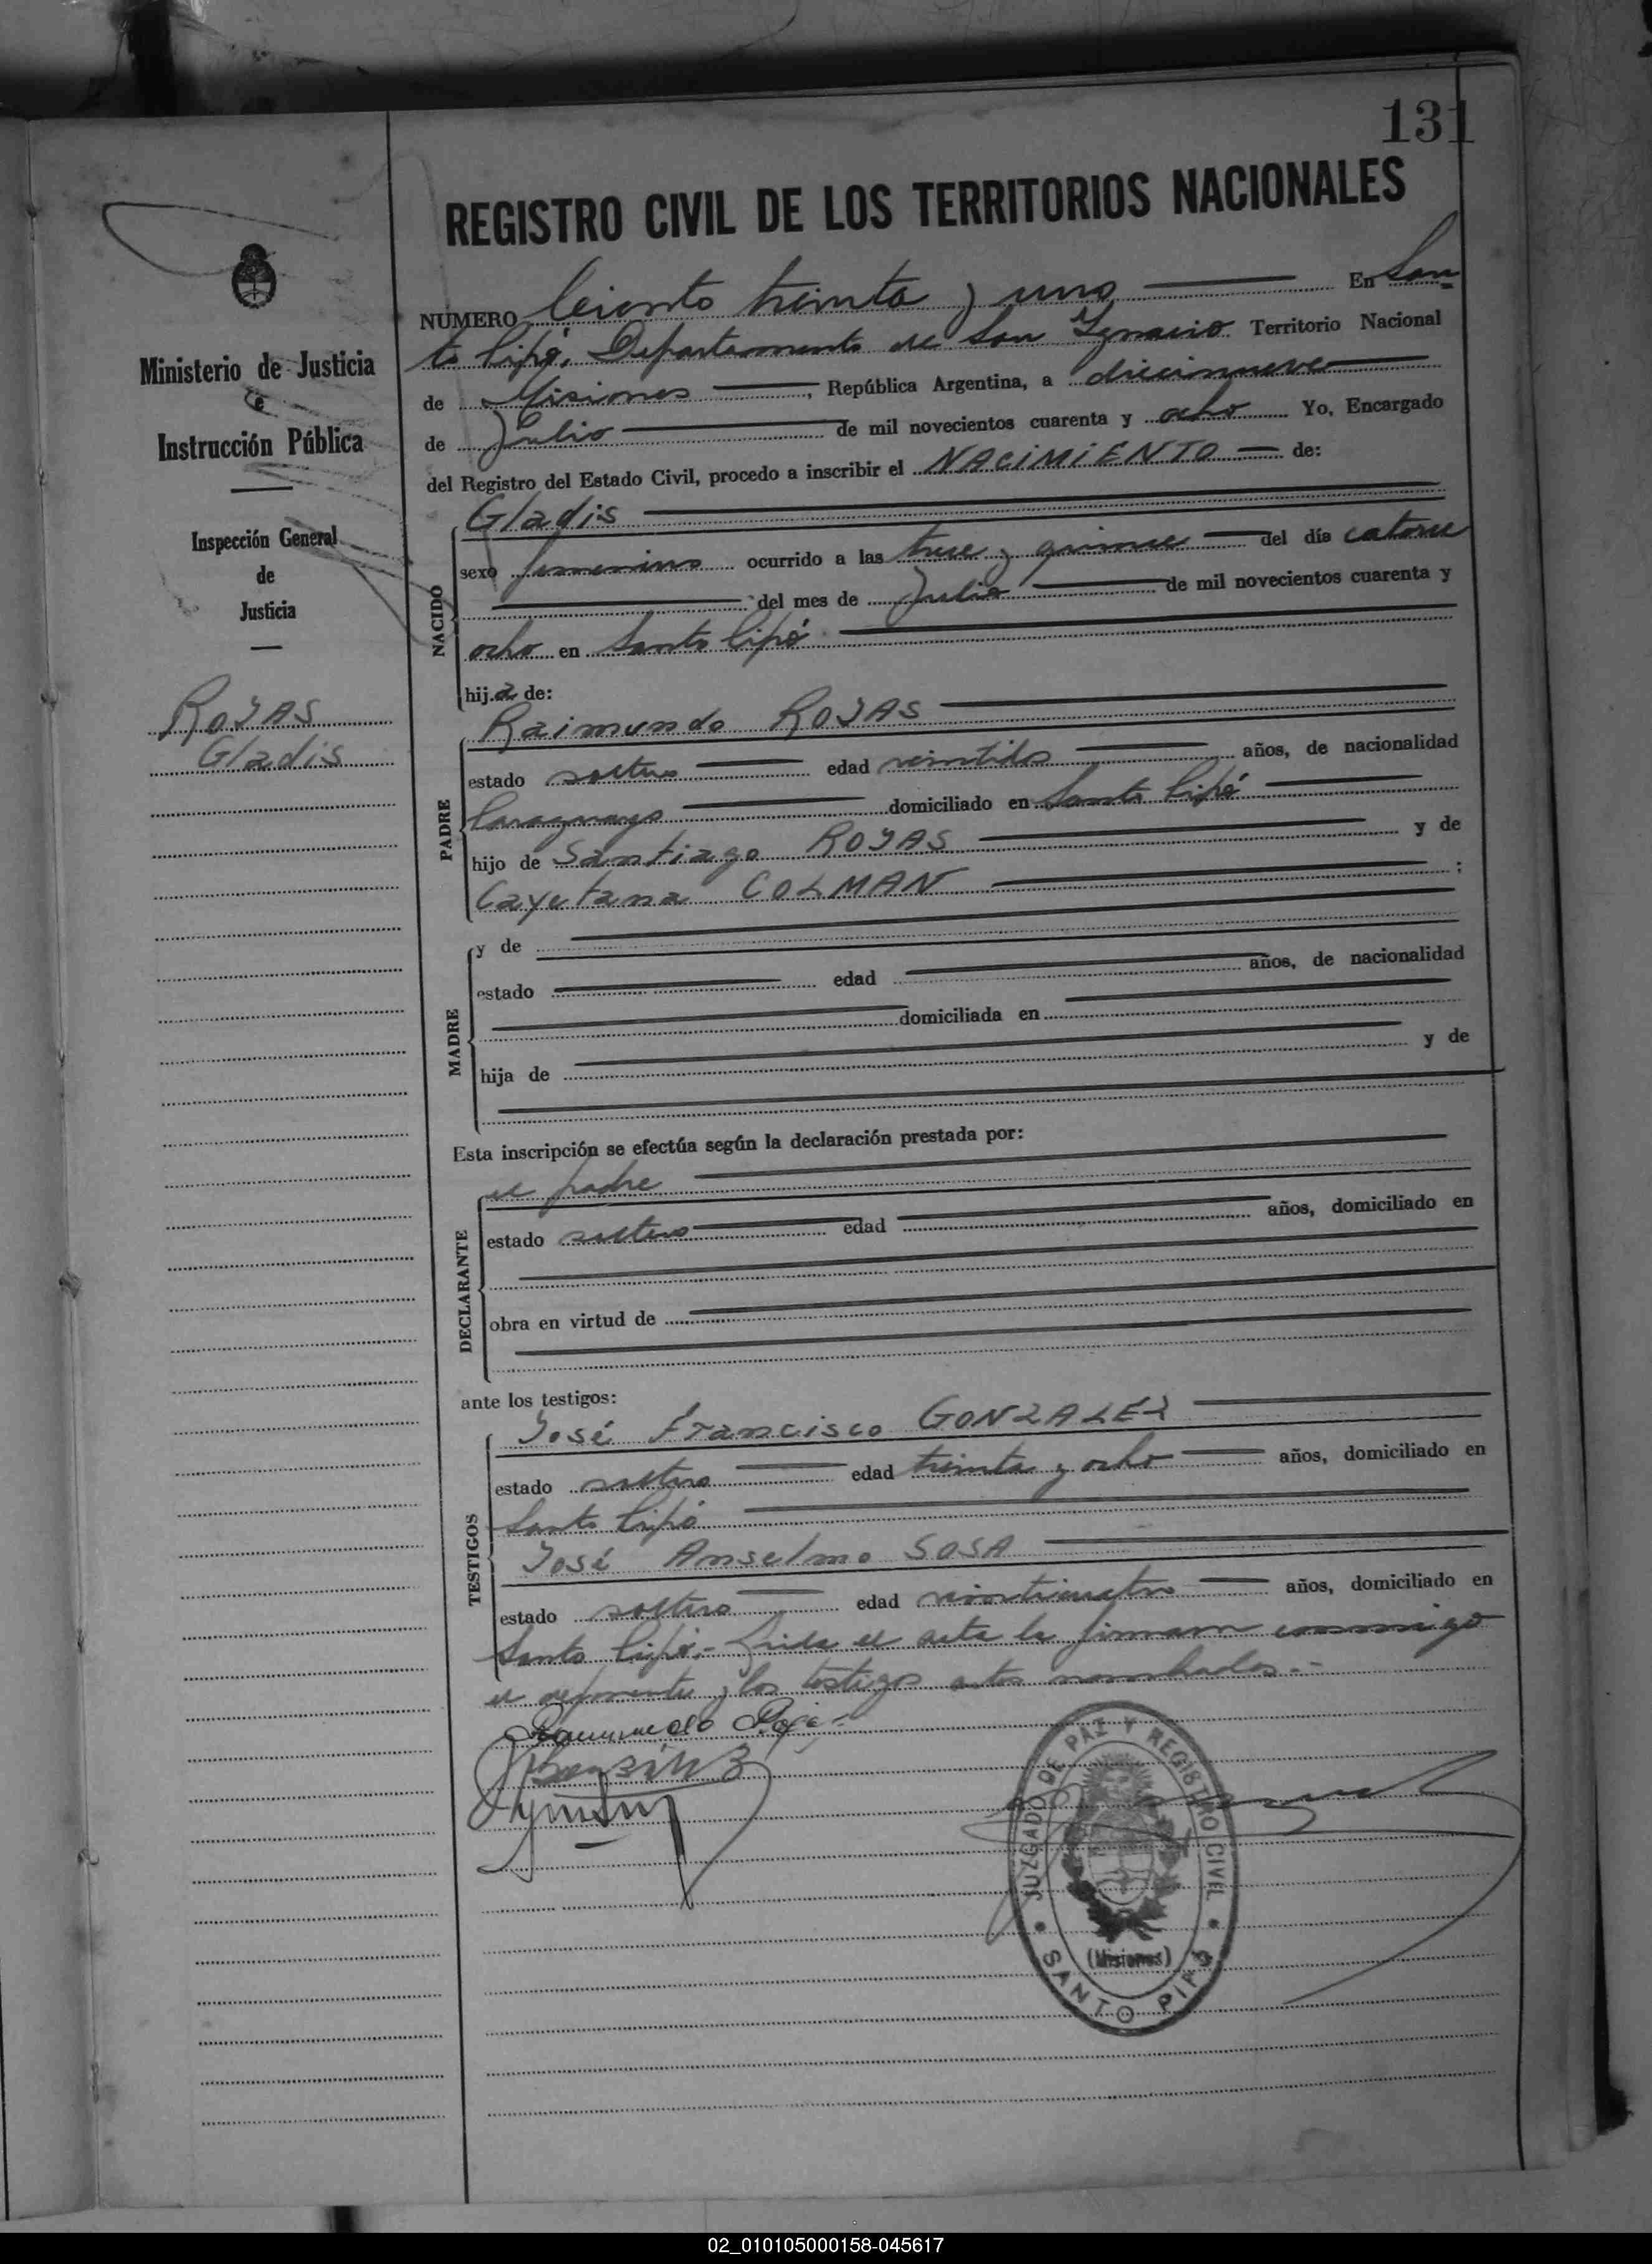 131
REGISTRO CIVIL DE LOS TERRITORIOS NACIONALES
Ministerio de Justicia
e
Instrucción Pública
Inspección General
de
Justicia
ROJAS
Gladis
NÚMERO Ciento treinta y uno En San
to Pipó, Departamento de San Ignacio Territorio Nacional
de Misiones, República Argentina, a diecinueve
de Julio de mil novecientos cuarenta y ocho Yo, Encargado
del Registro del Estado Civil, procedo a inscribir el NACIMIENTO de:
NACIDO
Gladis
sexo femenino ocurrido a las trece y quince del día catorce
del mes de Julio de mil novecientos cuarenta y
ocho en Santo Pipó
hij.a de:
PADRE
Raimundo ROJAS
estado soltero edad veintidos años, de nacionalidad
Paraguayo domiciliado en Santo Pipó
hijo de Santiago ROJAS y de
Cayetana COLMAN ;
MADRE
y de
estado edad años, de nacionalidad
domiciliada en
hija de y de
Esta inscripción se efectúa según la declaración prestada por:
DECLARANTE
el padre
estado soltero edad años, domiciliado en
obra en virtud de
ante los testigos:
TESTIGOS
José Francisco GONZALEZ
estado soltero edad treinta y ocho años, domiciliado en
Santo Pipó
José Anselmo SOSA
estado soltero edad veinticuatro años, domiciliado en
Santo Pipó.- Leida el acta la firman conmigo
el deponente y los testigos antes nombrados.-
Raimundo Rojas
JUZGADO DE PAZ Y REGISTRO CIVIL
(Misiones)
SANTO PIPÓ
02_010105000158-045617